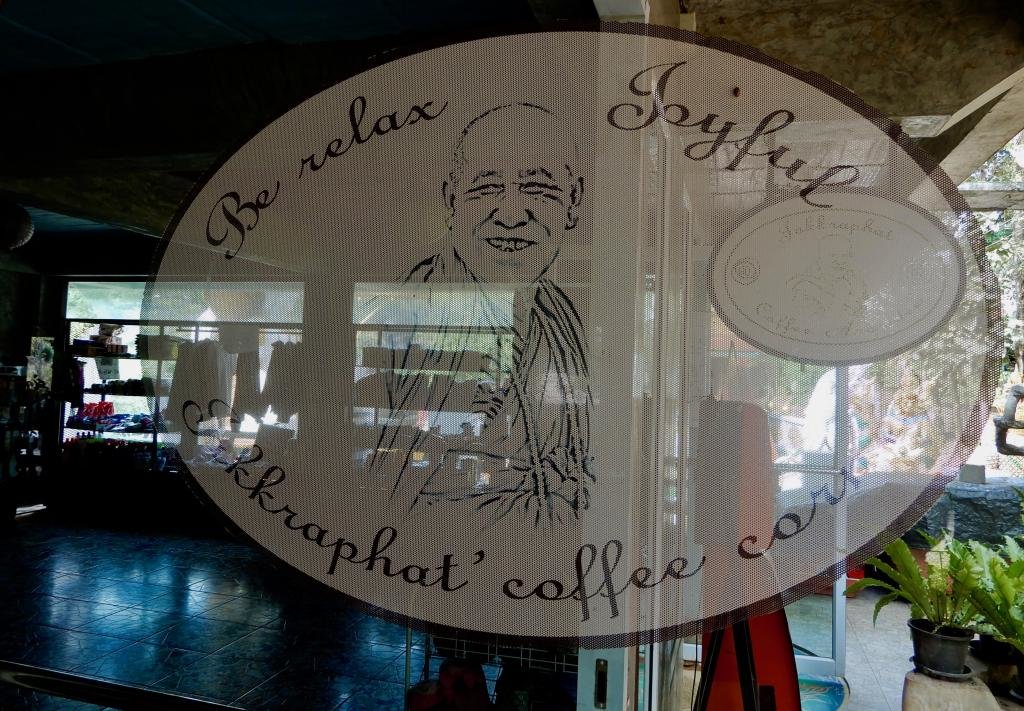 Be relax Joyful
Sakkraphat' coffee corn
Sakkraphat
Coffee